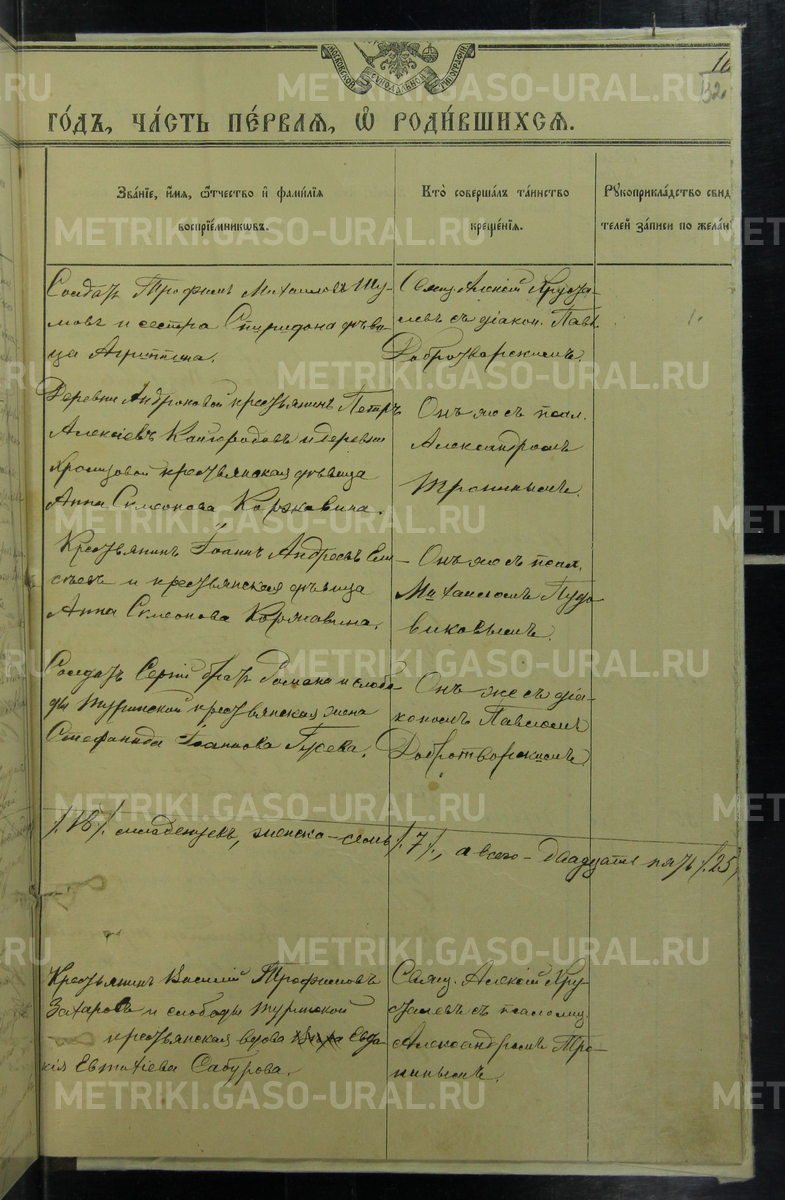 МОСКОВСКОЙ СѴНОДАЛЬНОЙ ТИПОГРАФІИ
32
го́дъ, ча́сть пе́рваѧ, ѡ҆ роди́вшихсѧ.
Зва́нїе, и҆́мѧ, ѻ҆́тчество и҆ фами́лїѧ
воспрїе́мникωвъ.
Кто̀ соверша́лъ та́инство
креще́нїѧ.
Рꙋкоприкла́дство свид
телей за́писи по жела́нї
Солдатъ Трофимъ Михаиловъ Шу-
мовъ и сестра Спиридона дѣви-
ца Агриппина.
Свящ. Алексій Хруза-
левъ съ діакон. Павл.
Добротворскимъ.
1.
Деревни Андроновой крестьянинъ Петръ
Алексіевъ Кайгородовъ и деревни
Храмцовой крестьянская дѣвица
Анна Симеонова Коржавина.
Онъ же съ псал.
Александромъ
Трониным.
Крестьянинъ Іоаннъ Андреевъ Ели-
сѣевъ и крестьянская дѣвица
Анна Симеонова Коржавина.
Онъ же съ псал.
Михаиломъ Пудо-
виковымъ.
Солдатъ Сергій братъ Романа и слобо-
ды Туринской крестьянская жена
Стефанида Іоаннова Гусева.
Онъ же съ діа-
кономъ Павломъ
Добротворскимъ
/.18/. младенцевъ, женска – семь /.7/., а всего – двадцать пять /.25/
Крестьянинъ Василій Трофимовъ
Захаровъ и слободы Туринской
крестьянская вдова Евдо-
кія Евтихіева Сабурова.
Свящ. Алексій Хру-
залевъ съ псаломщ.
Александромъ Тро-
нинымъ.
METRIKI.GASO-URAL.RU